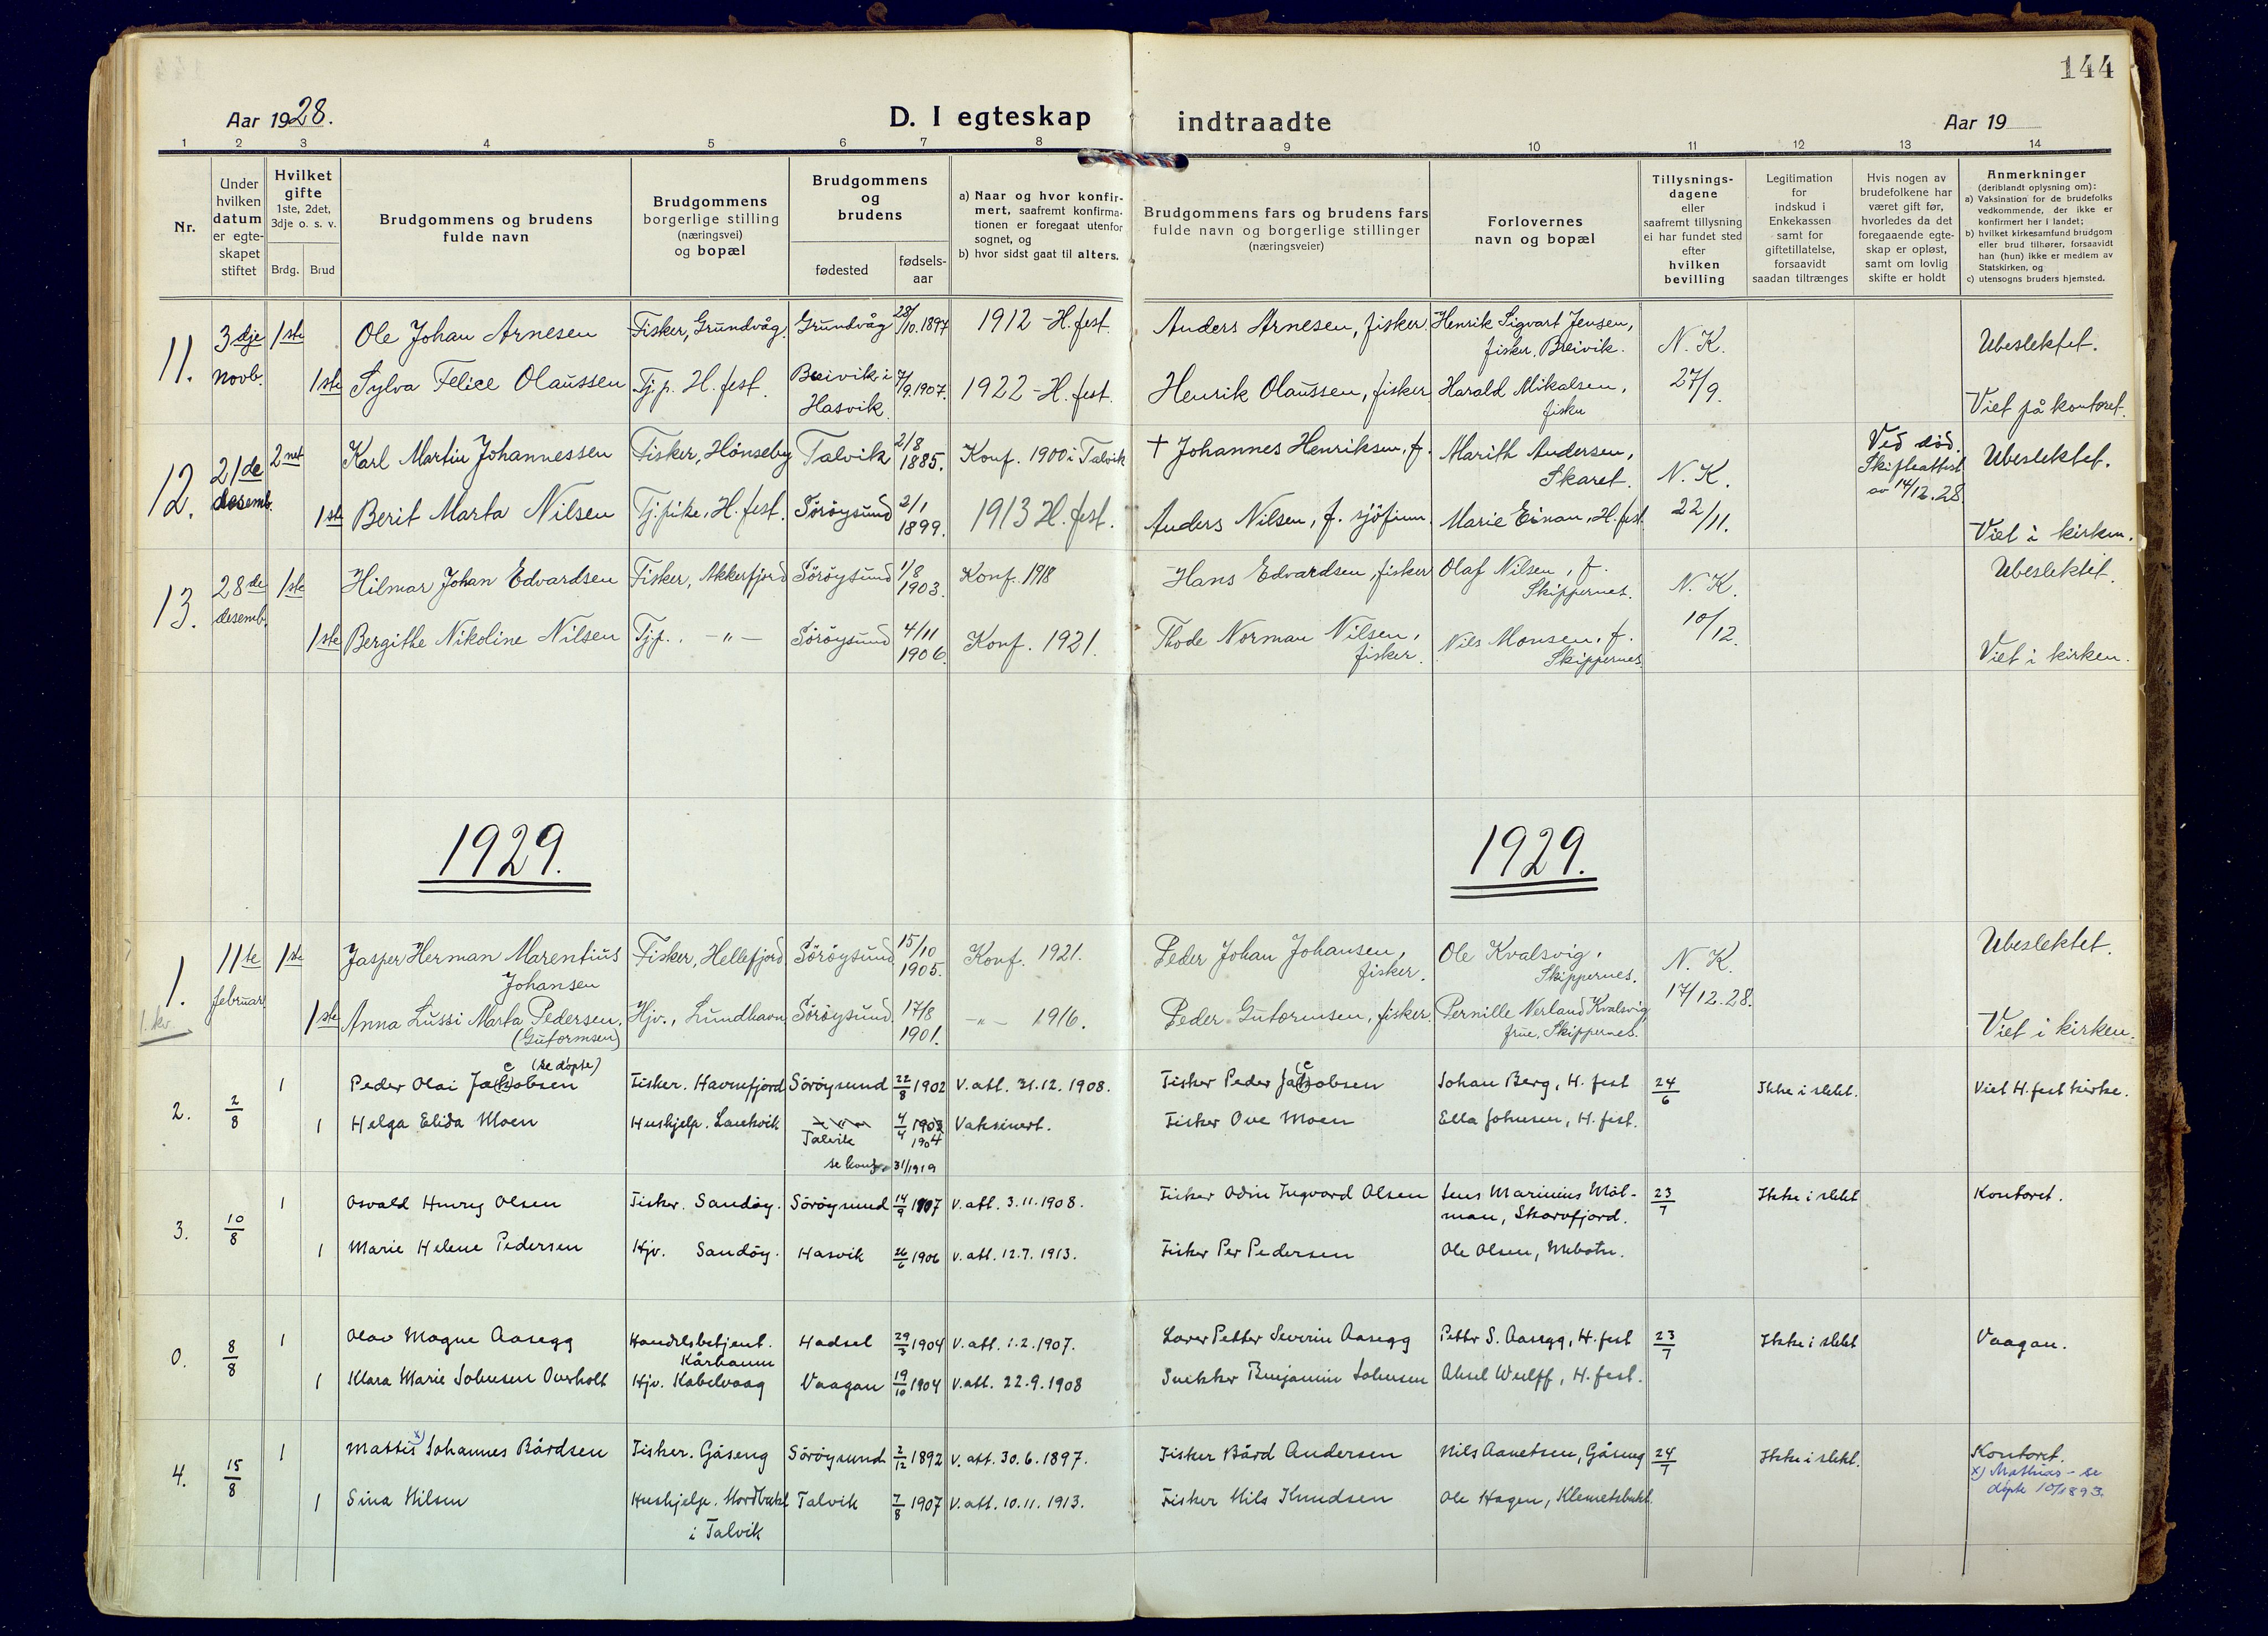 144
Aar 1928.
D. I egteskap indtraadte
Aar 19
1 2 3 4 5 6 7 8 9 10 11 12 13 14
Nr.
Under hvilken datum er egte-skapet stiftet
Hvilket gifte
1ste, 2det, 3dje o. s. v.
Brdg. Brud
Brudgommens og brudens fulde navn
Brudgommens borgerlige stilling (næringsvei) og bopæl
Brudgommens og brudens
fødested
fødsels-aar
a) Naar og hvor konfir-mert, saafremt konfirma-tionen er foregaat utenfor sognet, og
b) hvor sidst gaat til alters.
Brudgommens fars og brudens fars fulde navn og borgerlige stillinger (næringsveier)
Forlovernes navn og bopæl
Tillysnings-dagene eller saafremt tillysning ei har fundet sted efter hvilken bevilling
Legitimation for indskud i Enkekassen samt for giftetillatelse, forsaavidt saadan tiltrænges
Hvis nogen av brudefolkene har været gift før, hvorledes da det foregaaende egte-skap er opløst, samt om lovlig skifte er holdt
Anmerkninger
(deriblandt oplysning om):
a) Vaksination for de brudefolks vedkommende, der ikke er konfirmert her i landet;
b) hvilket kirkesamfund brudgom eller brud tilhører, forsaavidt han (hun) ikke er medlem av Statskirken, og
c) utensogns bruders hjemsted.
11. 3dje novb. 1ste Ole Johan Arnesen Fisker, Grundvåg. Grundvåg 28/10.1897 1912 - H.fest. Anders Arnesen, fisker. Henrik Sigvart Jensen, fisker, Breivik. N. K. 27/9. Ubeslektet.
1ste Sylva Felice Olaussen Tj.p. H. fest. Breivik i Hasvik 7/9.1907. 1922 - H. fest. Henrik Olaussen, fisker. Harald Mikalsen, fisker Viet på kontoret.
12. 21de desemb. 2net Karl Martin Johannessen Fisker, Hönseby Talvik 2/8 1885. Konf. 1900 i Talvik † Johannes Henriksen, f. Marith Andersen, Skaret. N. K. 22/11. Ved död. Skifteattest av 14/12.28 Ubeslektet.
1ste Berit Marta Nilsen Tj.pike, H. fest. Söröysund 2/1 1899. 1913 H. fest. Anders Nilsen, f. sjöfinn. Marie Einan, H. fest Viet i kirken.
13. 28de desemb. 1ste Hilmar Johan Edvardsen Fisker, Akkerfjord Söröysund 1/8 1903. Konf. 1918 Hans Edvardsen, fisker Olaf Nilsen, f. Skippernes. N. K. 10/12. Ubeslektet.
1ste Bergithe Nikoline Nilsen Tjp. -"- Söröysund 4/11 1906. Konf. 1921. Thode Norman Nilsen, fisker. Nils Monsen, f. Skippernes. Viet i kirken.
1929. 1929.
1. 11te februar. 1ste Jasper Herman Marentius Johansen Fisker, Hellefjord Söröysund 15/10 1905. Konf. 1921. Peder Johan Johansen, fisker. Ole Kvalsvig, Skippernes. N. K. 17/12.28. Ubeslektet.
1. kv
1ste Anna Lussi Marta Pedersen. (Gutormsen) Hjv., Lundhavn Söröysund 17/8 1901. -"- 1916. Peder Gutormsen, fisker. Pernille Nerland Kvalsvig, frue, Skippernes. Viet i kirken.
2. 2/8 1 Peder Olai Jakobsen c (se döpte) Fisker. Havnefjord Söröysund 22/8 1902 V. att. 31.12.1908. Fisker Peder Jakobsen c Johan Berg, H. fest 24/6 Ikke i slekt. Viet H. fest kirke.
1 Helga Elida Moen Hushjelp. Lankvik Talvik 4/4 1903 1904 Vaksinert. Fisker Ove Moen Ella Johnsen, H. fest.
se konf. 31/1919
3. 10/8 1 Osvald Henry Olsen Fisker. Sandöy. Söröysund 14/9 1907 V. att. 3.11.1908. Fisker Odin Ingvard Olsen Jens Marinius Möl-man, Skarvfjord. 23/7 Ikke i slekt Kontoret.
1 Marie Helene Pedersen Hjv. Sandöy. Hasvik 26/6 1906 V. att. 12.7.1913. Fisker Per Pedersen Ole Olsen, Mebotn.
0. 8/8 1 Olav Magne Aasegg Handelsbetjent. Kårhamn Hadsel 29/3 1904 V. att. 1.2.1907. Lærer Petter Severin Aasegg Petter S. Aasegg, H. fest 23/7 Ikke i slekt Vaagan.
1 Klara Marie Johnsen Overholt Hjv. Kabelvaag Vaagan 19/10 1904 V. att. 22.9.1908 Snekker Benjamin Johnsen Aksel Wulff, H. fest.
4. 15/8 1 Mattis x) Johannes Bårdsen Fisker. Gåseng Söröysund 2/12 1892 V. att. 30.6.1897. Fisker Bård Andersen Nils Aanetsen, Gåseng 24/7 Ikke i slekt. Kontoret.
x) Mathias - se döpte 10/1893.
1 Sina Nilsen Hushjelp. Nordbukt i Talvik Talvik 7/8 1907 V. att. 10.11.1913. Fisker Nils Knudsen Ole Hagen, Klemetsbukt.